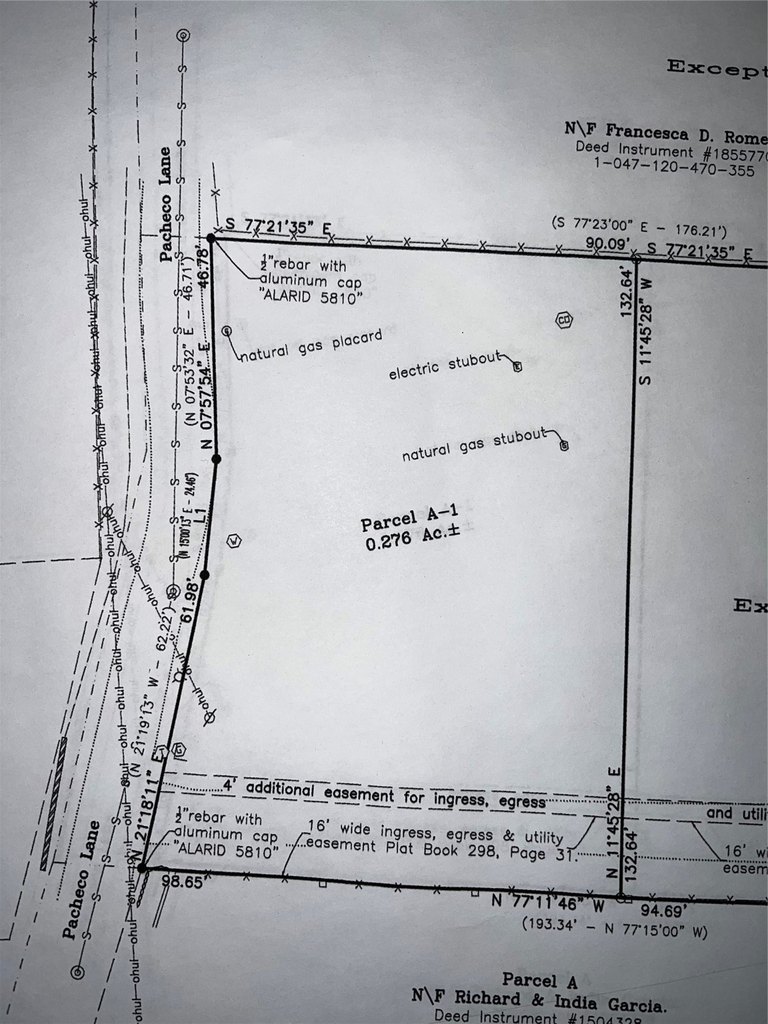 Except
N\F Francesca D. Rome
Deed Instrument #1855770
1-047-120-470-355
Pacheco Lane
S 77°21'35" E
(S 77°23'00" E - 176.21')
90.09'
S 77°21'35" E
46.78'
N 07°57'54" E
(N 07°53'32" E - 46.71')
½"rebar with
aluminum cap
"ALARID 5810"
132.64'
S 11°45'28" W
CO
natural gas placard
electric stubout
E
natural gas stubout
G
L1
(N 15°00'13" E - 24.46')
W
Parcel A-1
0.276 Ac.±
Ex
61.98'
N 21°18'11" E
(N 21°19'13" W - 62.22')
4' additional easement for ingress, egress
and utili
½"rebar with
aluminum cap
"ALARID 5810"
16' wide ingress, egress & utility
easement Plat Book 298, Page 31.
N 11°45'28" E
132.64'
16' wi
easem
Pacheco Lane
98.65'
N 77°11'46" W
94.69'
(193.34' - N 77°15'00" W)
Parcel A
N\F Richard & India Garcia.
Deed Instrument #1504328